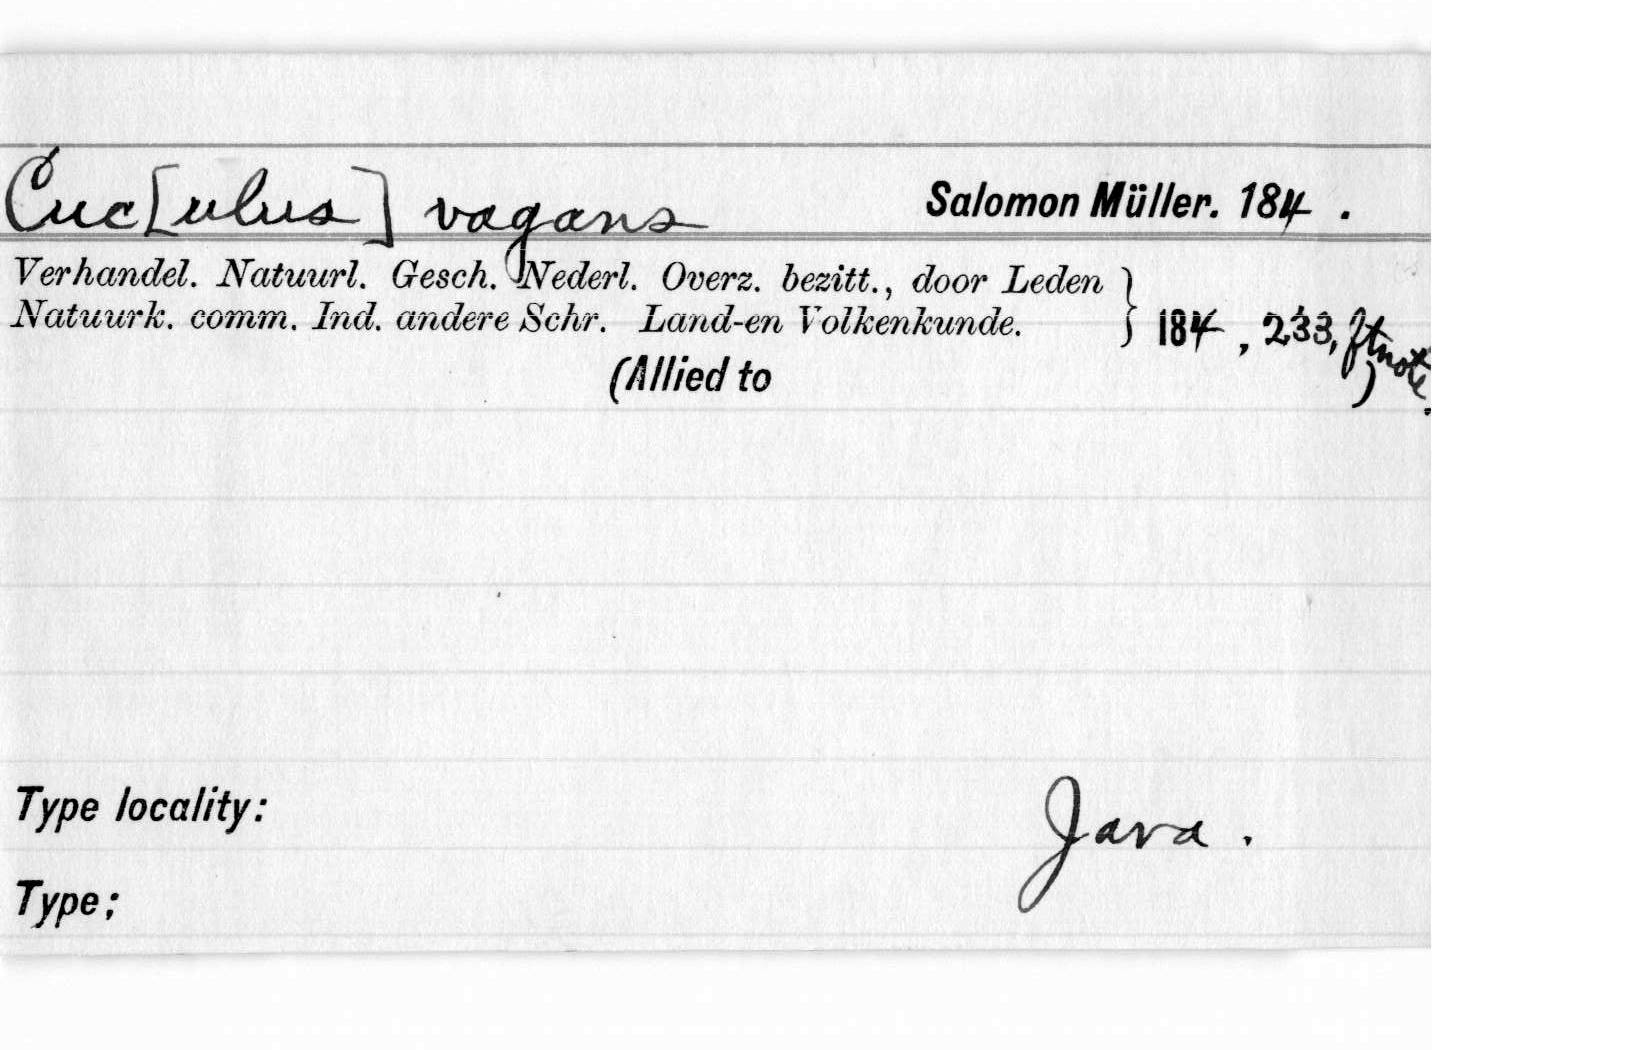 Cuc[ulus] vagans Salomon Müller. 184 .
Verhandel. Natuurl. Gesch. Nederl. Overz. bezitt., door Leden
Natuurk. comm. Ind. andere Schr. Land-en Volkenkunde. } 184 , 233, ftnote.
(Allied to )
Type locality: Java .
Type;